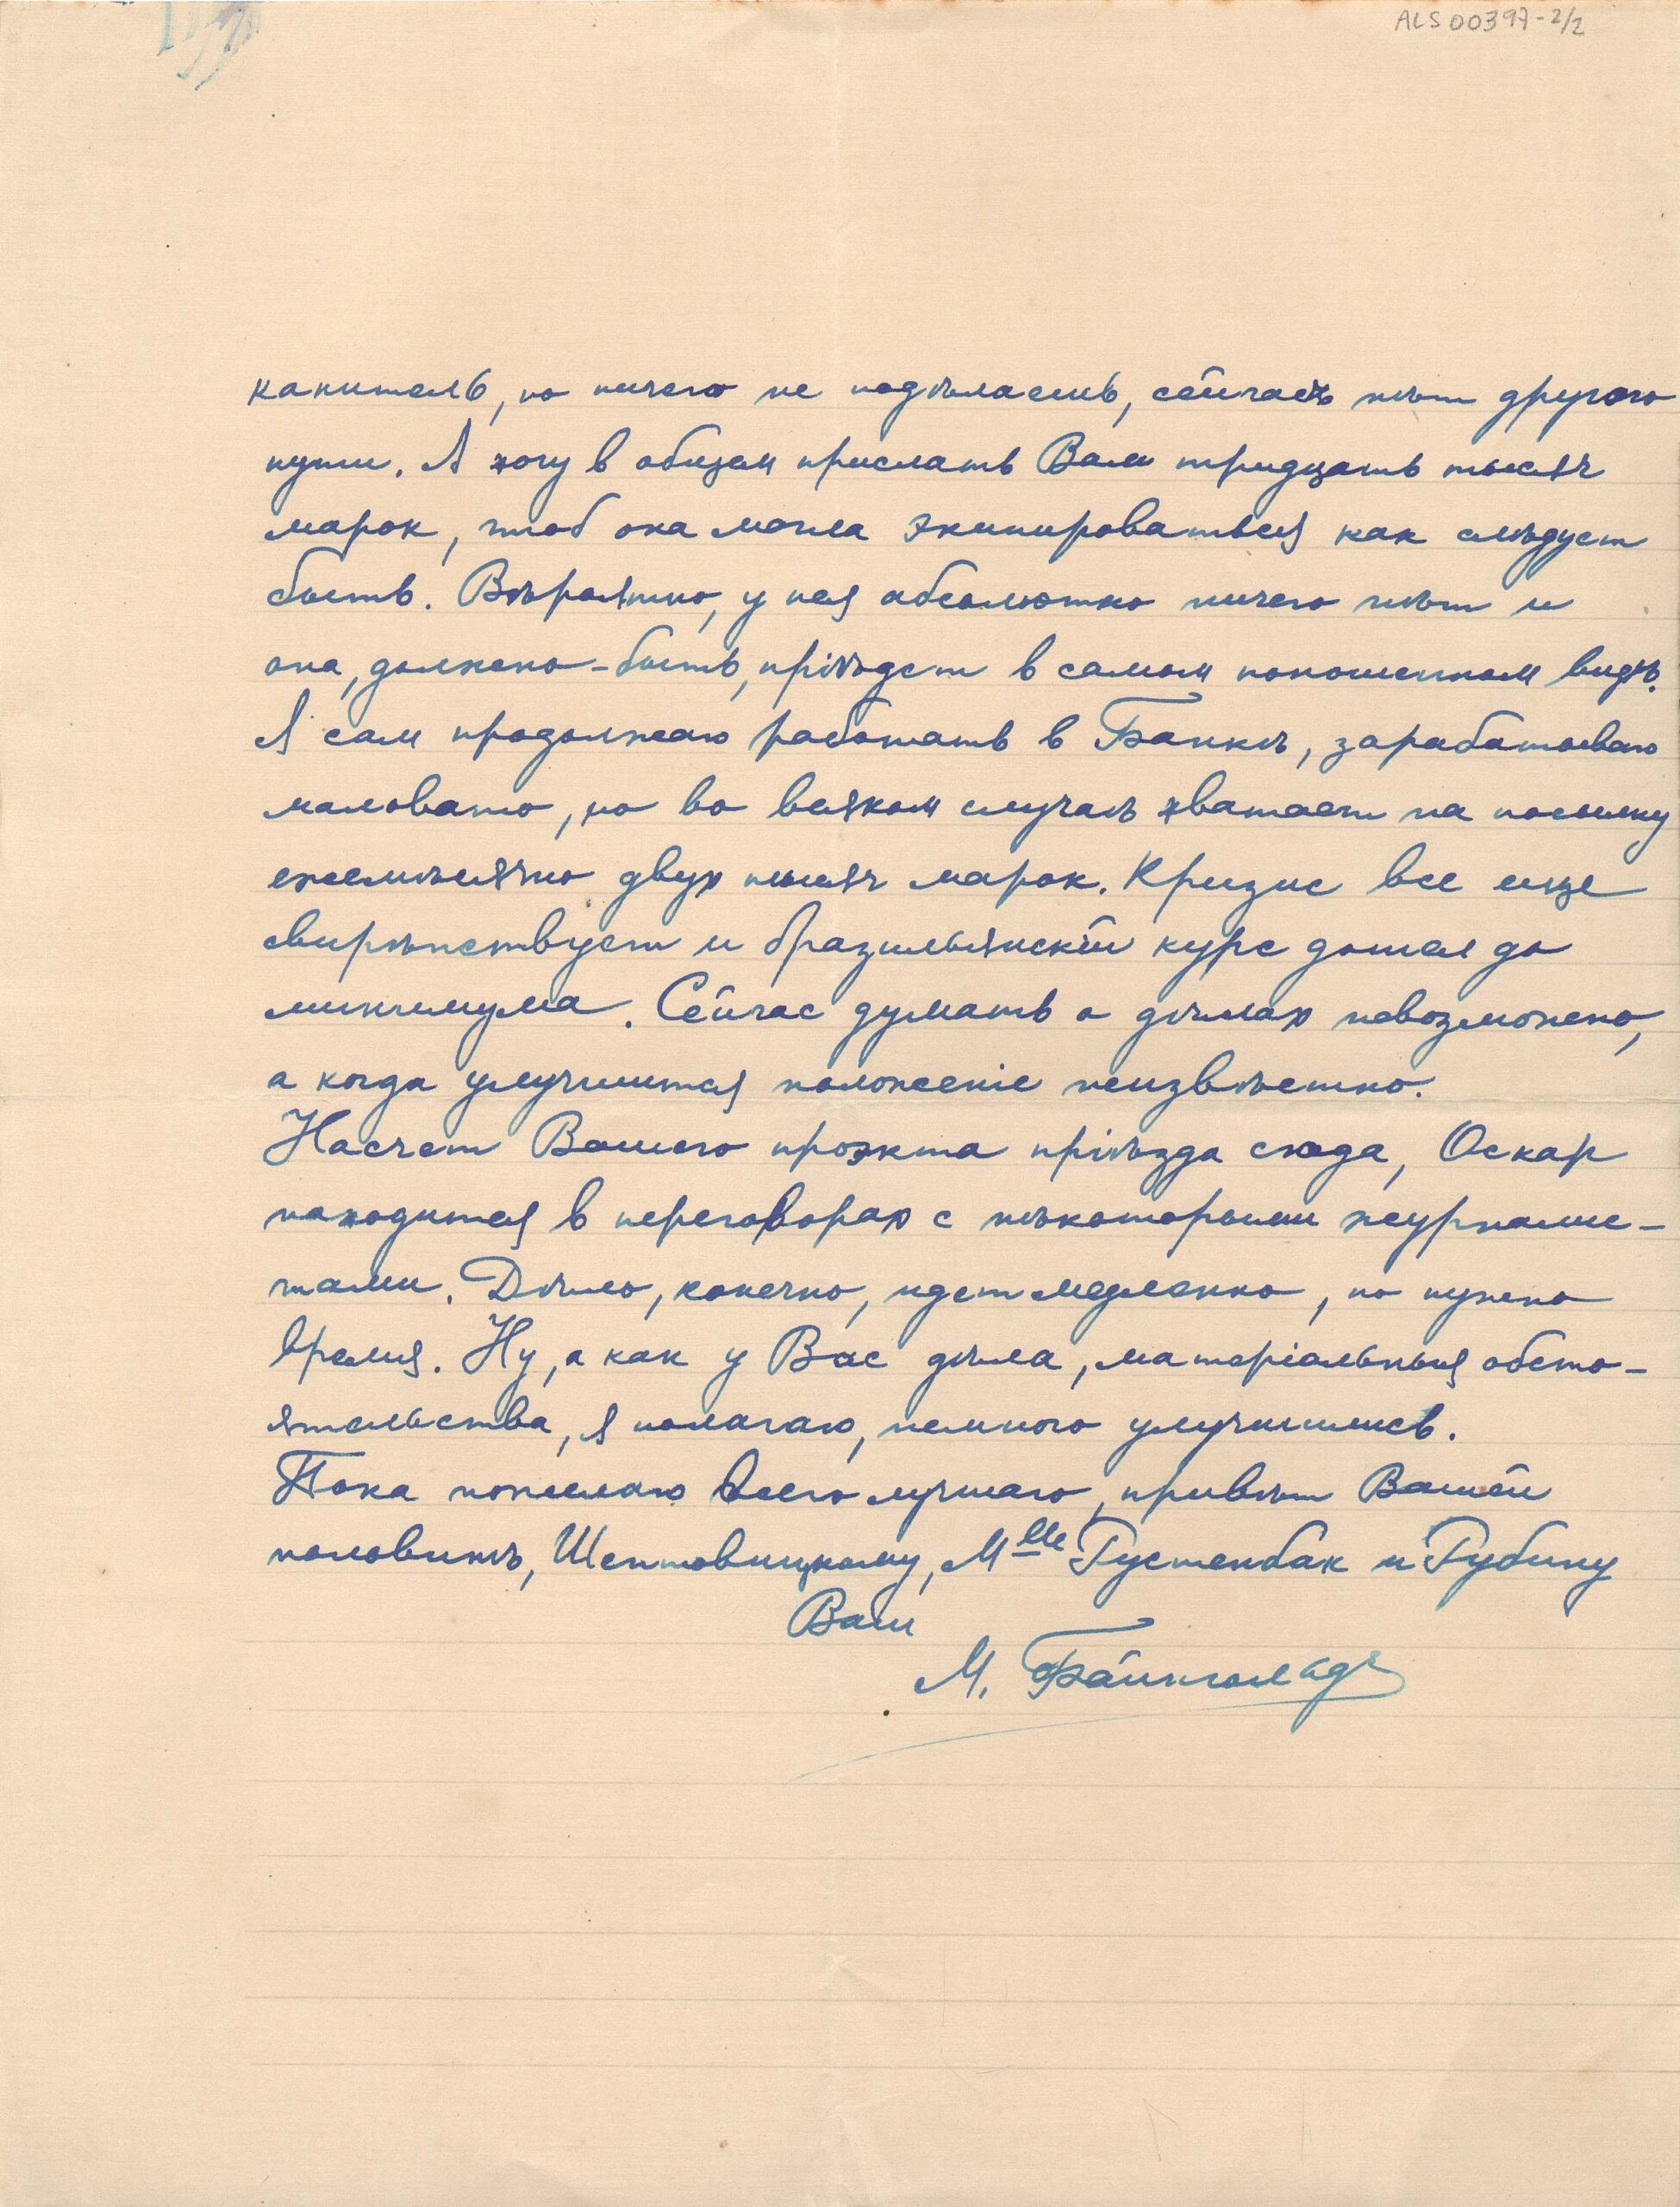 ALS 00397-2/2
канитель, но ничего не подѣлаешь, сейчас нѣт другого
пути. Я хочу в общем прислать Вам тридцать тысяч
марок, чтоб она могла экипироваться как слѣдует
быть. Вѣроятно, у нея абсолютно ничего нѣт и
она, должно-быть, пріѣдет в самом поношенном видѣ.
Я сам продолжаю работать в Банкѣ, зарабатываю
маловато, но во всяком случаѣ хватает на посылку
ежемѣсячно двух тысяч марок. Кризис все еще
свирѣпствует и бразильянскій курс дошел до
минимума. Сейчас думать о дѣлах невозможно,
а когда улучшится положеніе неизвѣстно.
Насчет Вашего проэкта пріѣзда сюда, Оскар
находится в переговорах с нѣкоторыми журналис-
тами. Дѣло, конечно, идет медленно, но нужно
время. Ну, а как у Вас дѣла, матеріальныя обсто-
ятельства, я полагаю, немного улучшились.
Пока пожелаю всего лучшаго, привѣт Вашей
половинѣ, Шентовицкому, Mlle Густенбак и Рубину
Ваш
М. Байнгольдъ